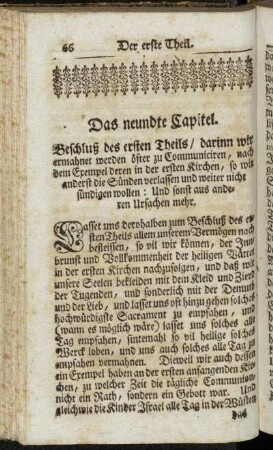 66 Der erste Theil.
Das neundte Capitel.
Beschluß des ersten Theils/ darinn wir
ermahnet werden öfter zu Communiciren, nach
dem Exempel deren in der ersten Kirchen, so wir
anderst die Sünden verlassen und weiter nicht
sündigen wollen: Und sonst aus ande-
ren Ursachen mehr.
Lasset uns derohalben zum Beschluß des er-
sten Theils allen unserem Vermögen nach
befleissen, so vil wir können, der Inn-
brunst und Vollkommenheit der heiligen Vätter
in der ersten Kirchen nachzufolgen, und daß wir
unsere Seelen bekleiden mit dem Kleid und Zierd
der Tugenden, und sonderlich mit der Demuth
und der Lieb, und lasset uns oft hinzu gehen solches
hochwürdigste Sacrament zu empfahen, und
(wann es möglich wäre) lasset uns solches alle
Tag empfahen, sintemahl so vil heilige solches
Werck loben, und uns auch solches alle Tag zu
empfahen vermahnen. Dieweil wir auch dessen
ein Exempel haben an der ersten anfangenden Kir-
chen, zu welcher Zeit die tägliche Communion
nicht ein Rath, sondern ein Gebott war. Und
gleichwie die Kinder Israel alle Tag in der Wüsten
das